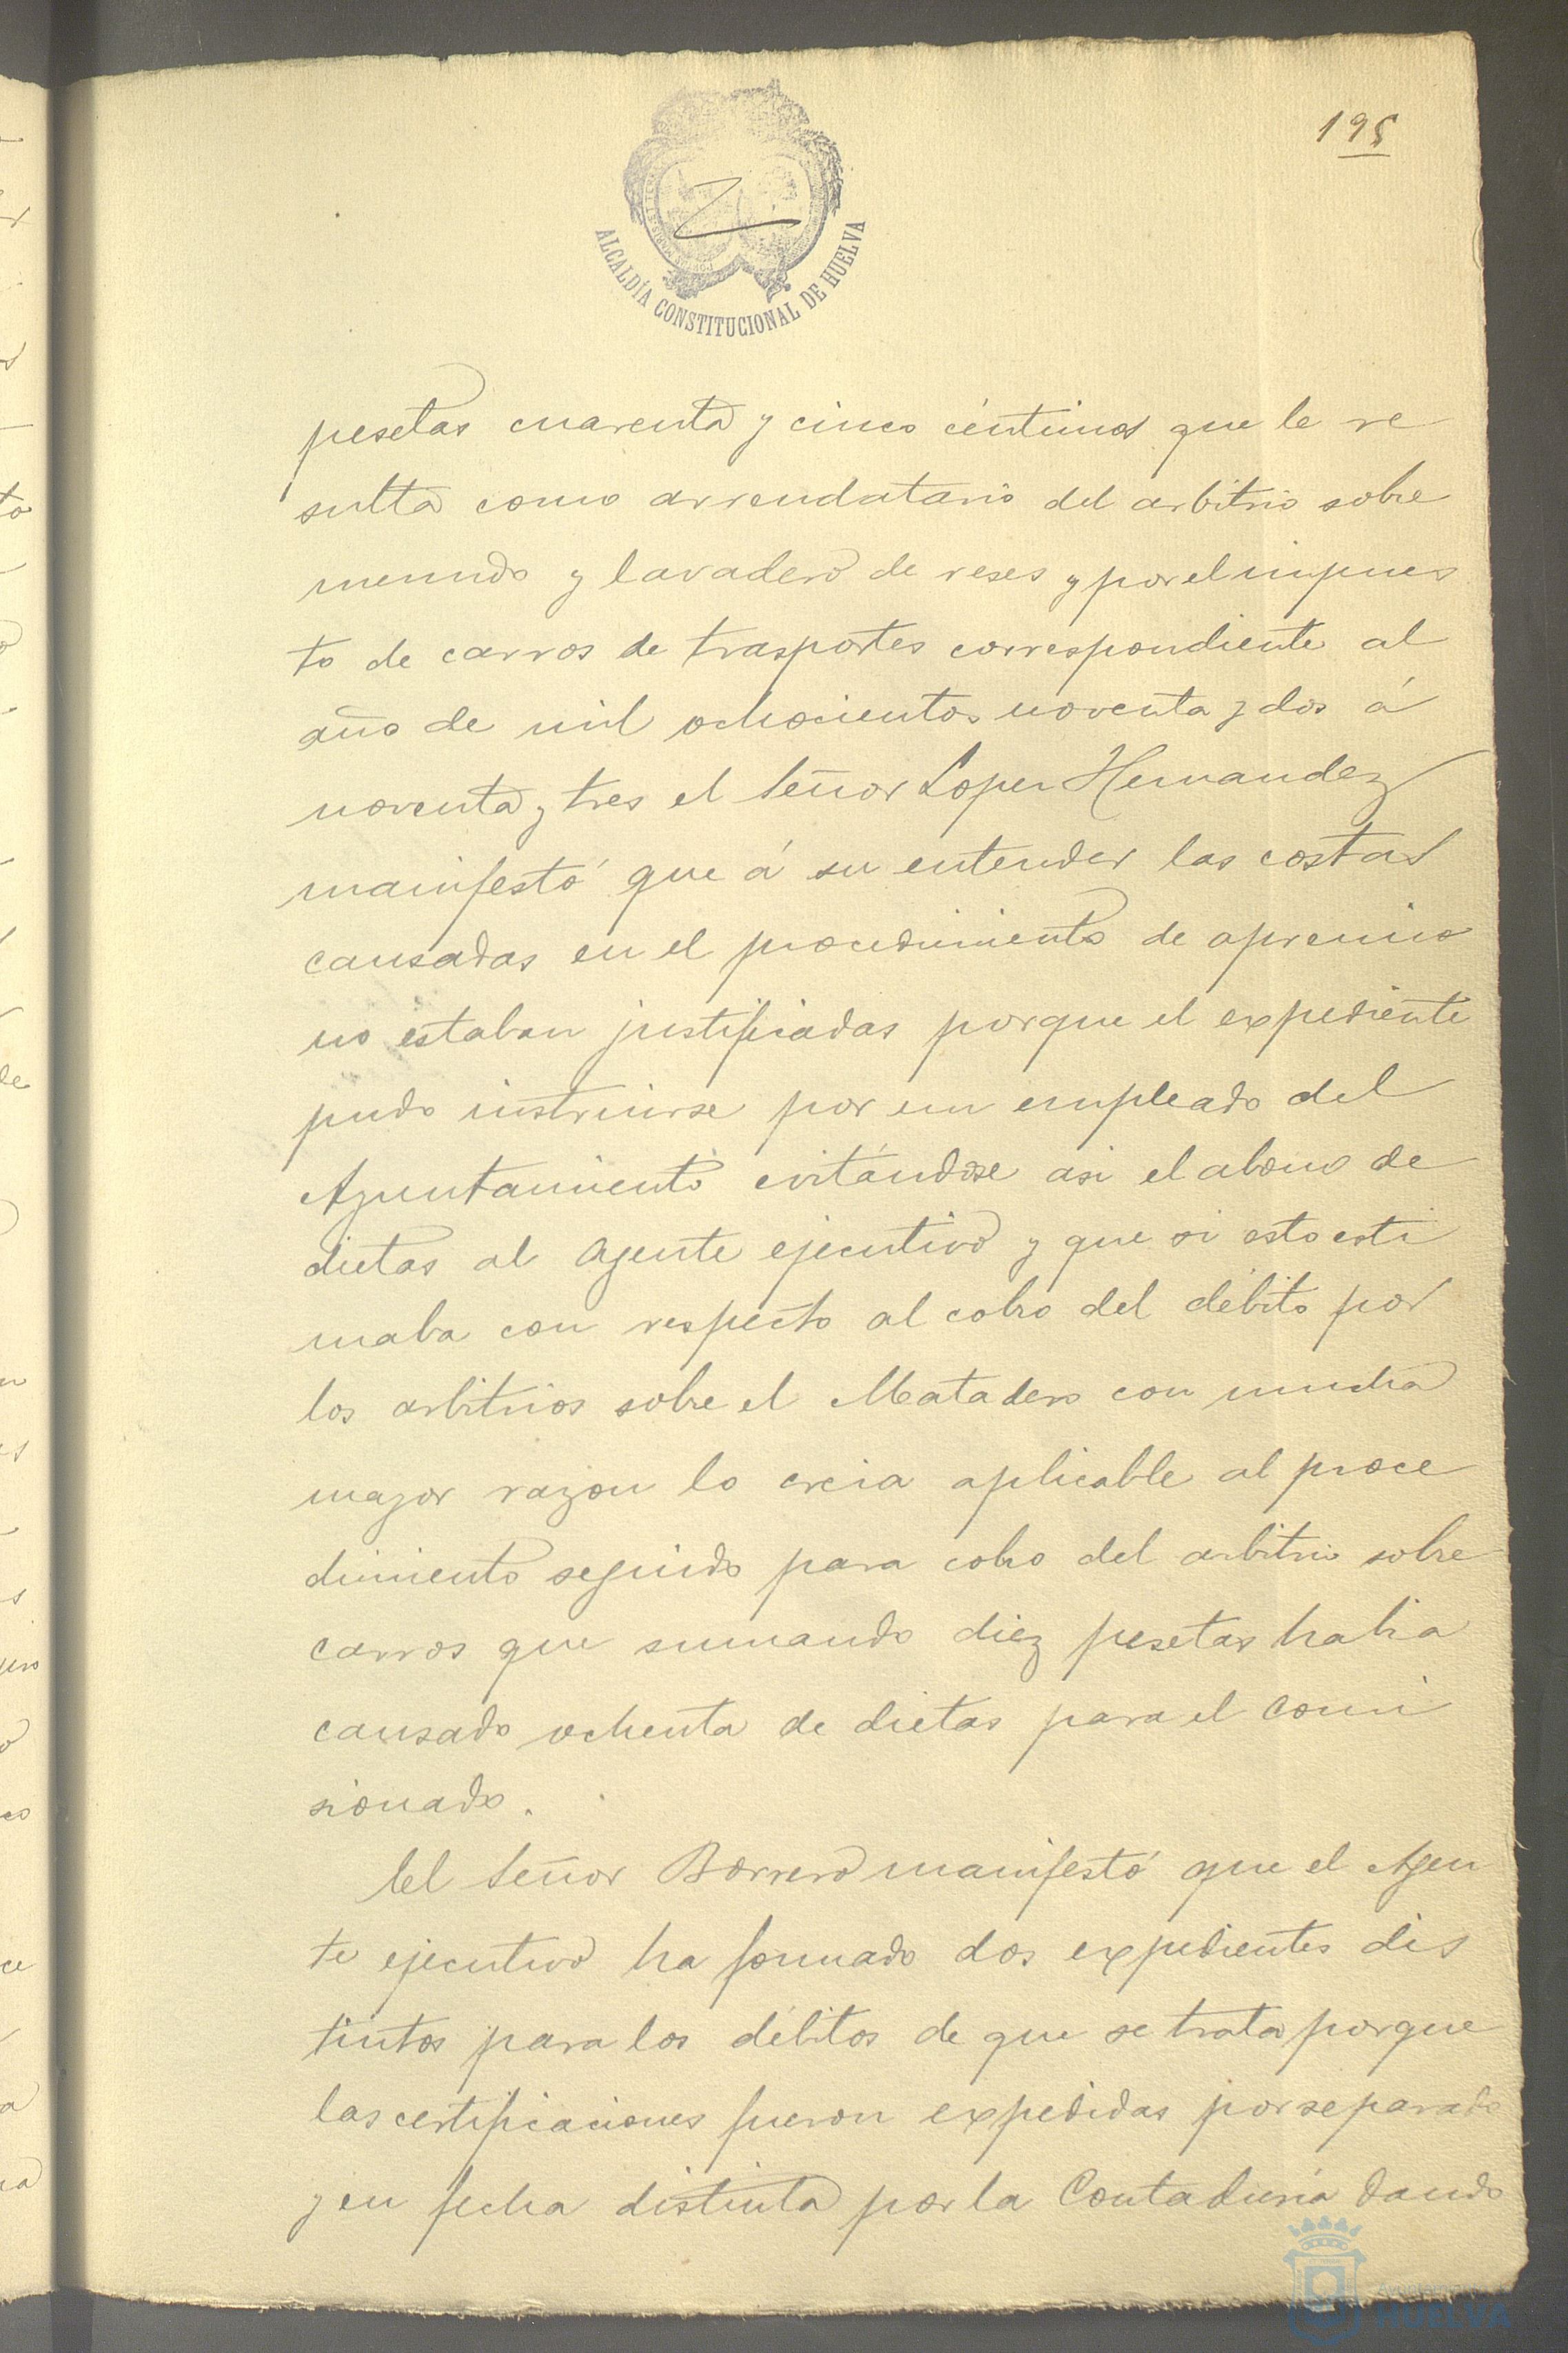 195
ALCALDÍA CONSTITUCIONAL DE HUELVA
pesetas cuarenta y cinco céntimos que le re
sulta como arrendatario del arbitrio sobre
menudo y lavadero de reses y por el impues
to de carros de trasportes correspondiente al
año de mil ochocientos noventa y dos á
noventa y tres el Señor Lopez Hernandez
manifestó que á su entender las costas
causadas en el procedimiento de apremio
no estaban justificadas porque el expediente
pudo instruirse por un empleado del
Ayuntamiento evitándose asi el abono de
dietas al Agente ejecutivo y que si esto esti
maba con respecto al cobro del débito por
los arbitrios sobre el Matadero con mucha
mayor razon lo creia aplicable al proce
dimiento seguido para cobro del arbitrio sobre
carros que sumando diez pesetas habia
causado ochenta de dietas para el Comi
sionado.
El Señor Borrero manifestó que el Agen
te ejecutivo ha formado dos expedientes dis
tintos para los débitos de que se trata porque
las certificaciones fueron expedidas por separado
y en fecha distinta por la Contaduria dando
HUELVA